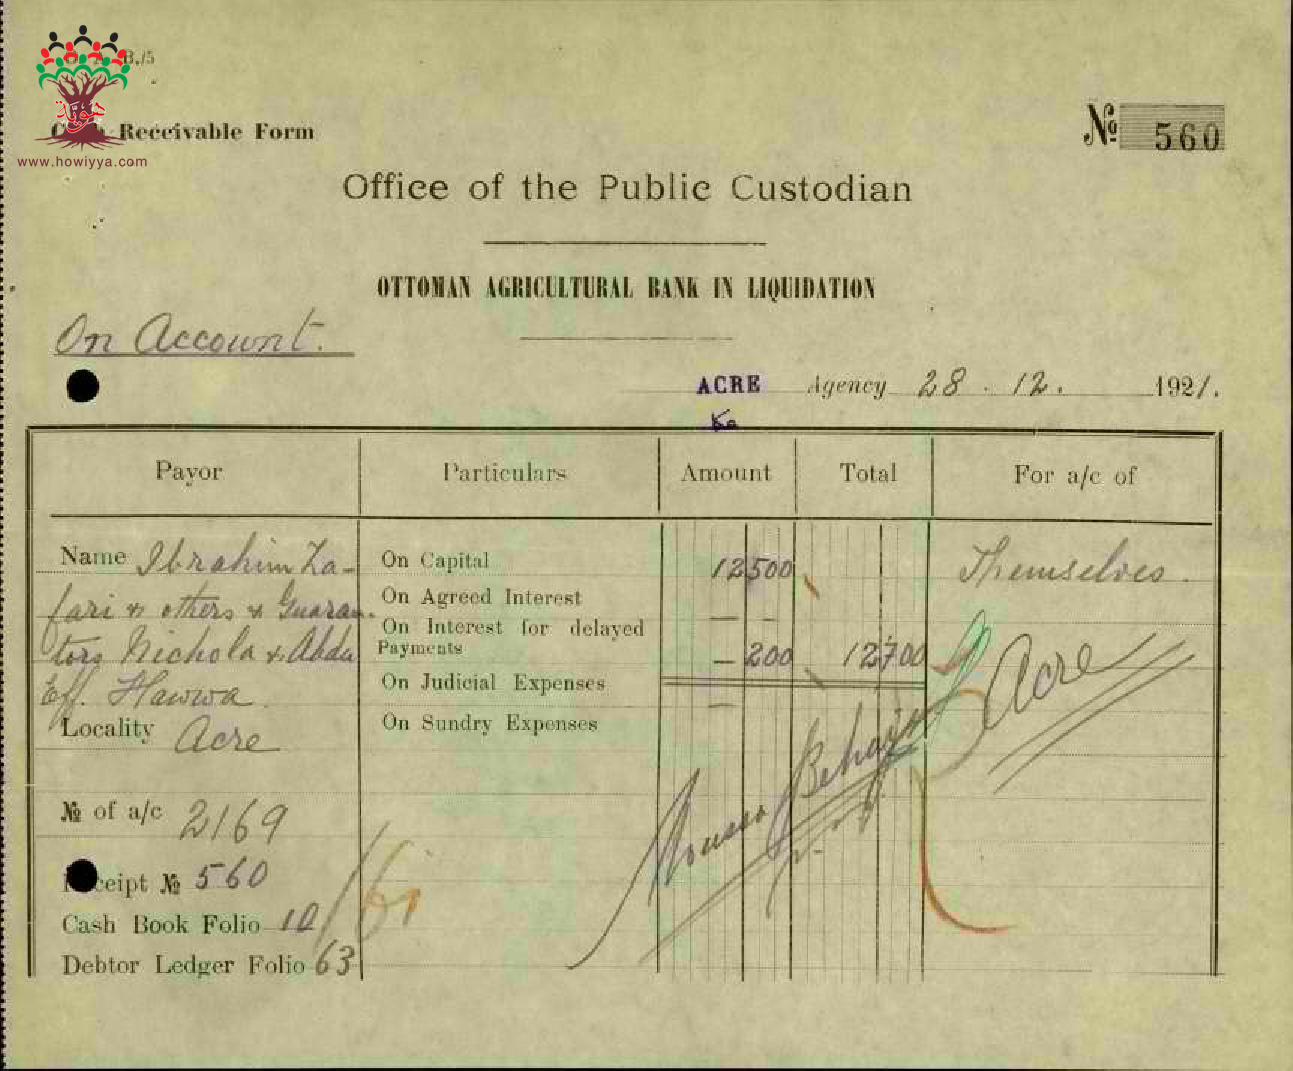 B./5
هوية
www.howiyya.com
Receivable Form
№ 560
Office of the Public Custodian
OTTOMAN AGRICULTURAL BANK IN LIQUIDATION
On Account.
ACRE Agency 28 . 12. 1921.
Payor Particulars Amount Total For a/c of
Name Ibrahim Za-
fari & others & Guaran-
tors Nichola & Abdu
Eff. Hawwa.
Locality Acre
№ of a/c 2169
Receipt № 560
Cash Book Folio 10
Debtor Ledger Folio 63
On Capital 12500
On Agreed Interest —
On Interest for delayed
Payments — 200 12700
On Judicial Expenses —
On Sundry Expenses
Themselves.
Acre